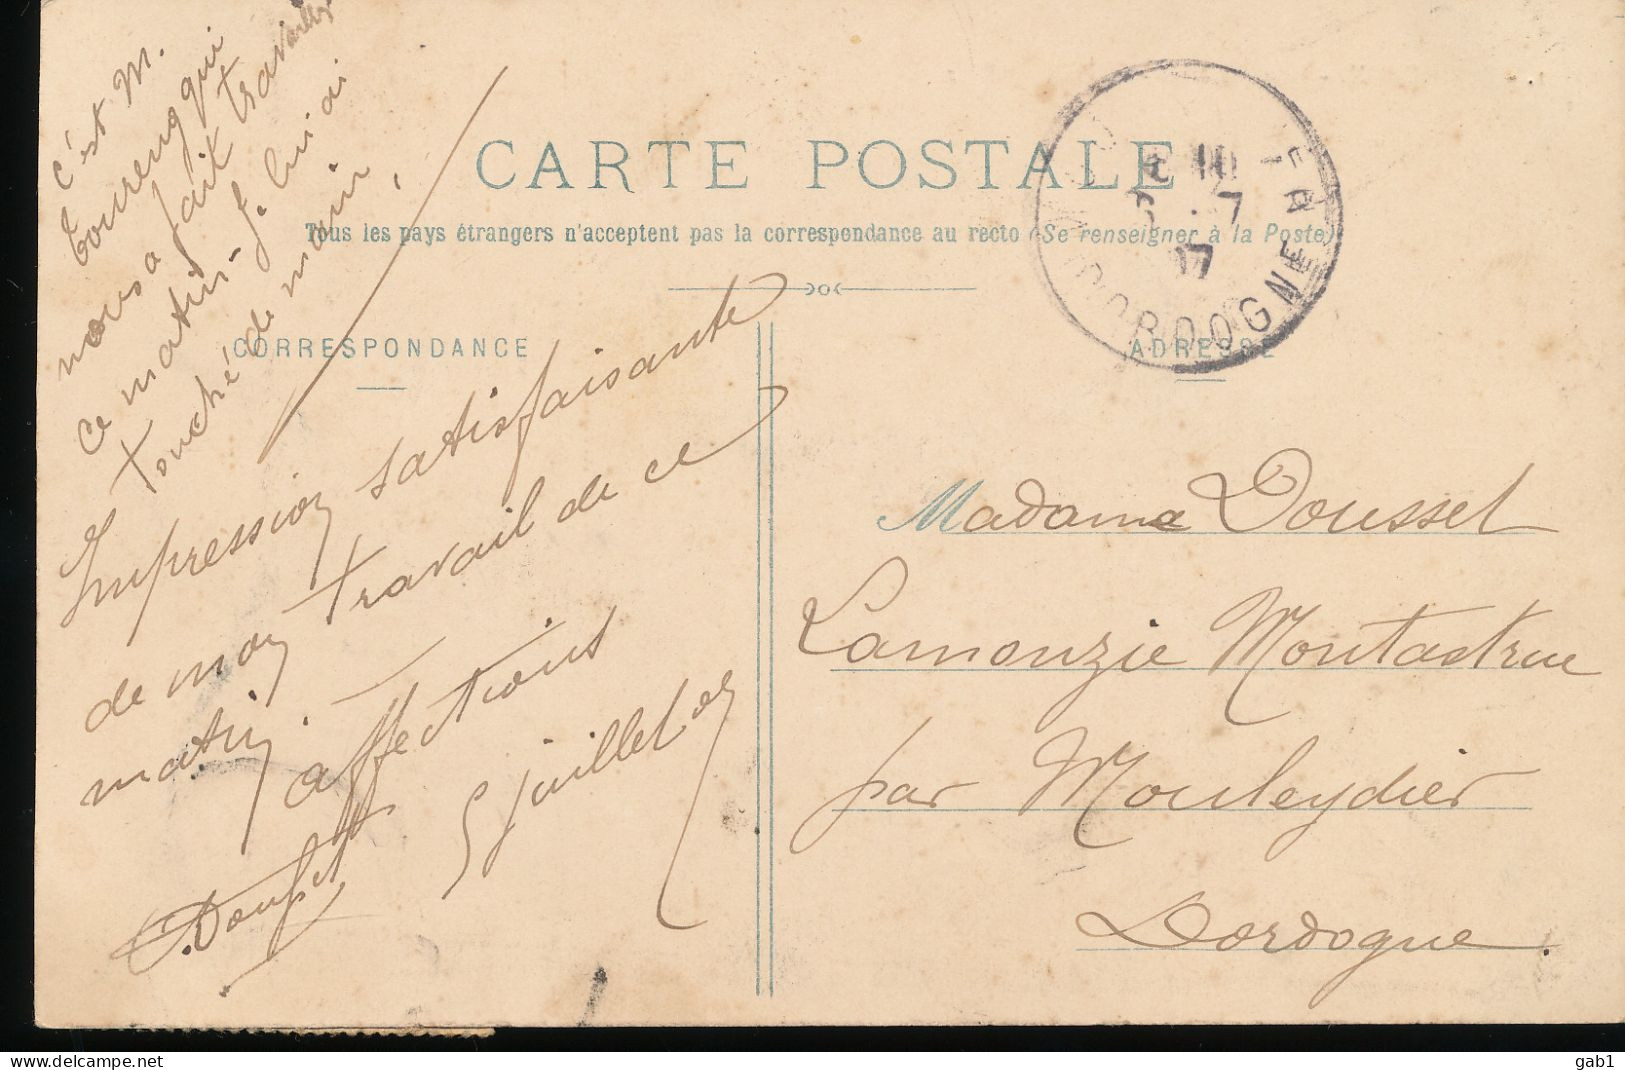 c'est M.
Toureng qui
nous a fait travailler
ce matin - Je lui ai
touché de main
CARTE POSTALE
Tous les pays étrangers n'acceptent pas la correspondance au recto (Se renseigner à la Poste)
CORRESPONDANCE
ADRESSE
Impression satisfaisante
de mon travail de ce
matin
affections
5 juillet 07
DORDOGNE
7
07
Madame Dousset
Lamonzie Montastruc
par Mouleydier
Dordogne.
delcampe.net
gab1